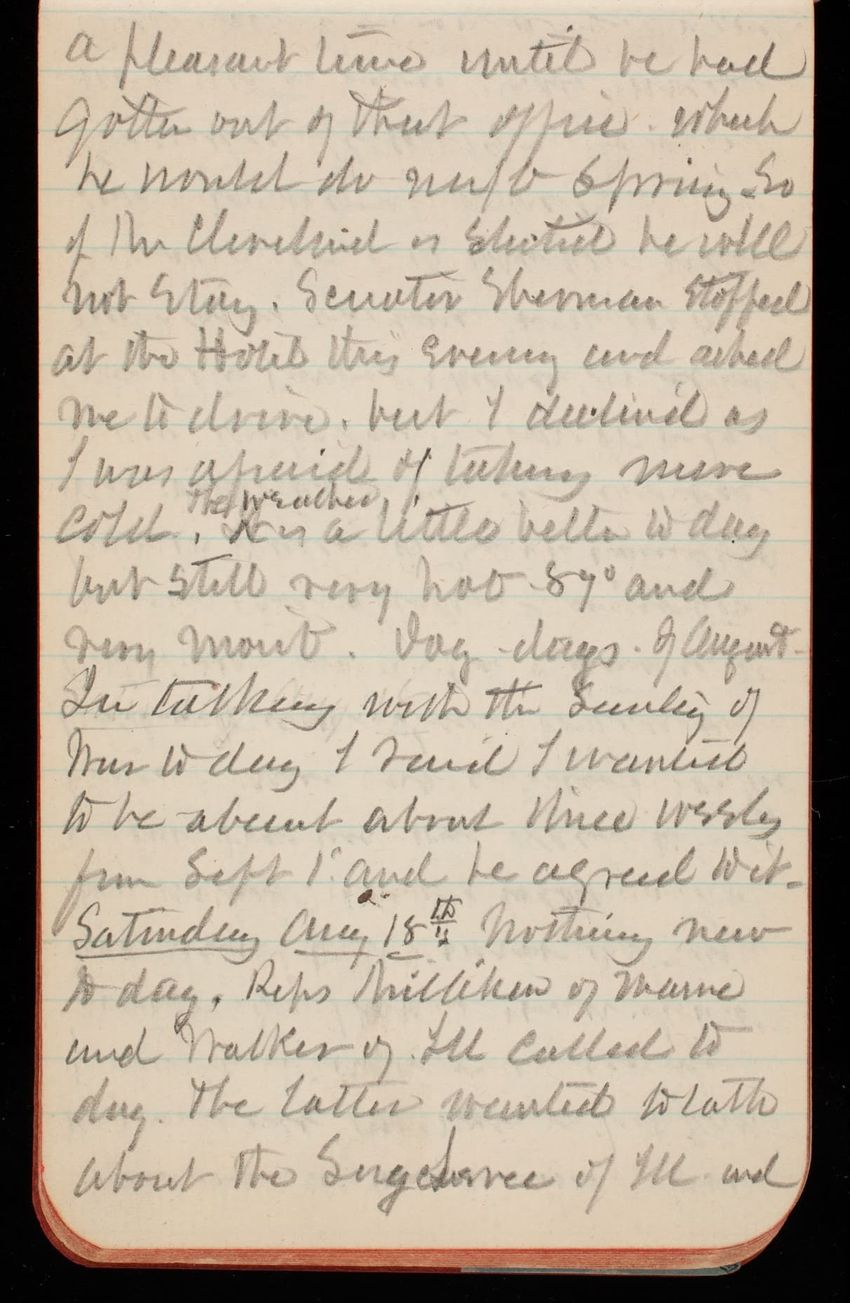 a pleasant time until he had
gotten out of that office. which
he would do next Spring. So
if Mr Cleveland is Elected he will
not Stay. Senator Sherman Stopped
at the Hotel this Evening and asked
me to drive. but I declined as
I was afraid of taking more
cold. The Weather is a little better to day
but Still very hot 87° and
very moist. Dog-days. of August-
In talking with the Secretary of
War to day I said I wanted
to be absent about three weeks
from Sept 1st and he agreed to it-
Saturday Aug 18th Nothing new
to day. Reps Milliken of Maine
and Walker of Ill called to
day. The latter wanted to talk
about the of Ill and